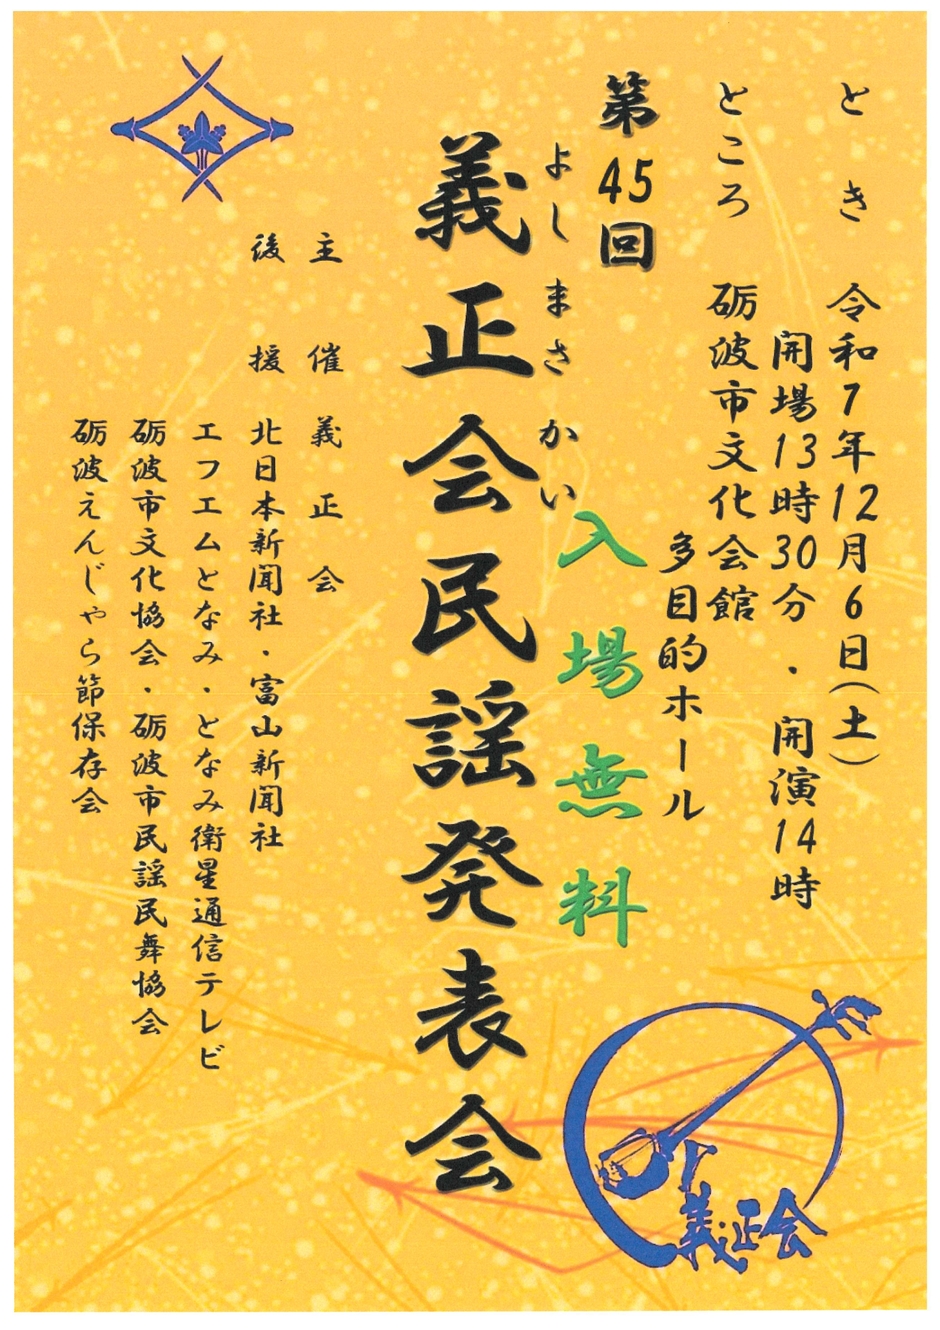 とき　令和7年12月6日(土)
開場13時30分・開演14時
ところ　砺波市文化会館
多目的ホール
第45回
よしまさかい
義正会民謡発表会
入場無料
主催　義正会
後援　北日本新聞社・富山新聞社
エフエムとなみ・となみ衛星通信テレビ
砺波市文化協会・砺波市民謡民舞協会
砺波えんじゃら節保存会
義正会